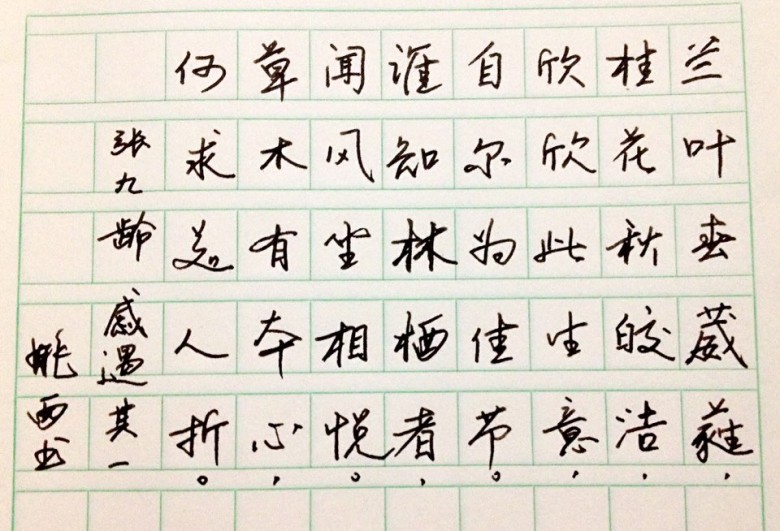 兰叶春葳蕤，
桂花秋皎洁，
欣欣此生意，
自尔为佳节。
谁知林栖者，
闻风坐相悦。
草木有本心，
何求美人折。
张九龄 感遇其一
姚西书